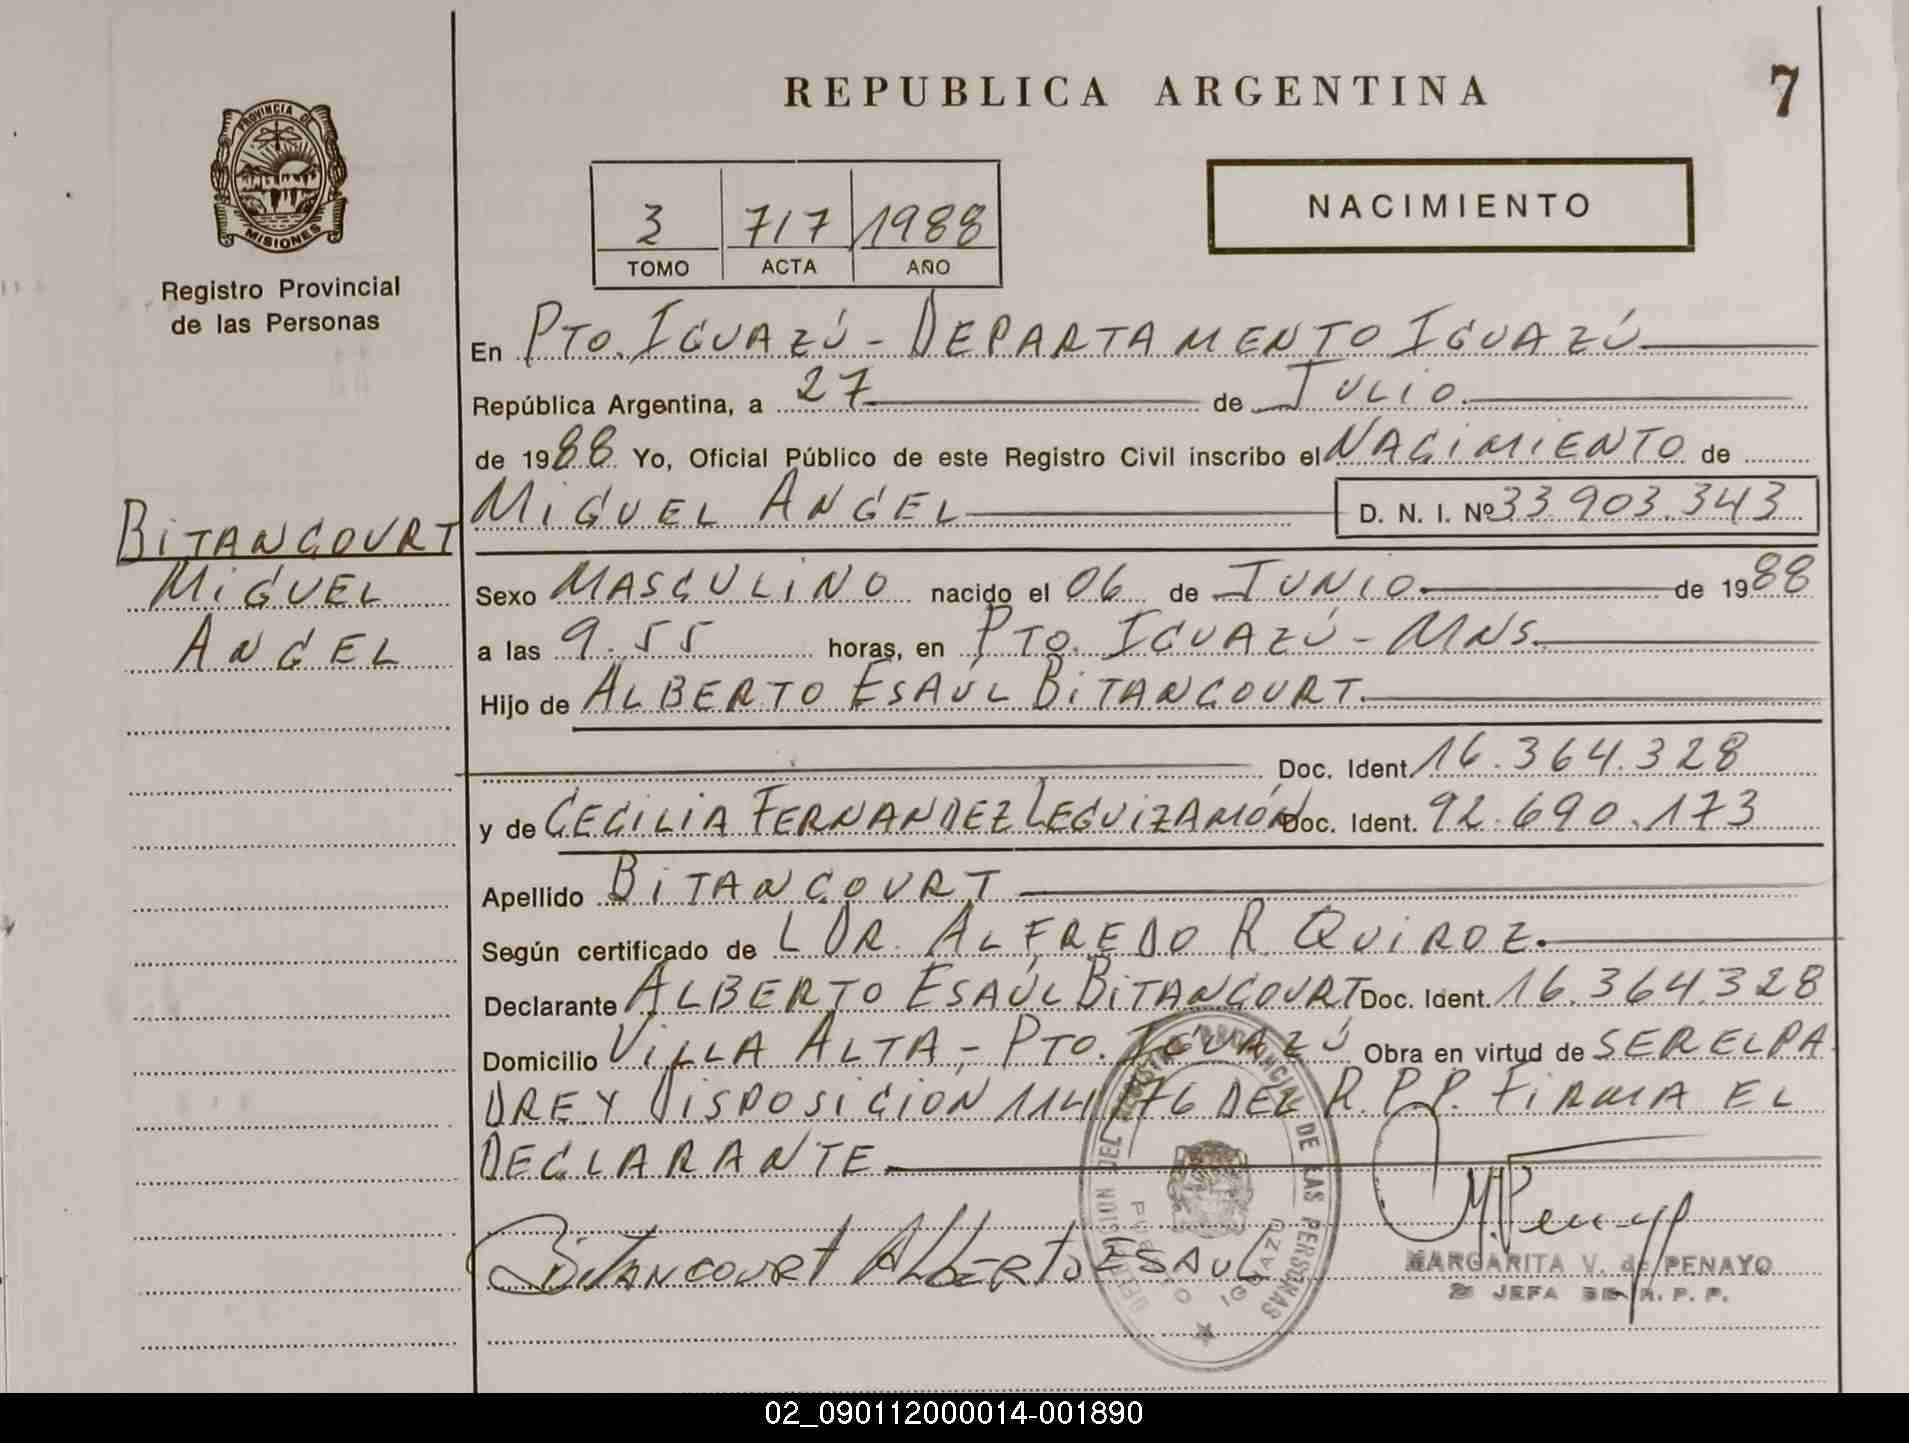 REPUBLICA ARGENTINA
7
PROVINCIA DE
MISIONES
Registro Provincial
de las Personas
3 717 1988
TOMO ACTA AÑO
NACIMIENTO
En PTO. IGUAZÚ - DEPARTAMENTO IGUAZÚ
República Argentina, a 27 de JULIO
de 1988 Yo, Oficial Público de este Registro Civil inscribo el NACIMIENTO de
MIGUEL ANGEL D. N. I. Nº 33.903.343
BITANCOURT
MIGUEL
ANGEL
Sexo MASCULINO nacido el 06 de JUNIO de 1988
a las 9.55 horas, en PTO. IGUAZÚ - MNS.
Hijo de ALBERTO ESAÚL BITANCOURT
Doc. Ident. 16.364.328
y de CECILIA FERNANDEZ LEGUIZAMÓN Doc. Ident. 92.690.173
Apellido BITANCOURT
Según certificado de L DR. ALFREDO R. QUIROZ.
Declarante ALBERTO ESAÚL BITANCOURT Doc. Ident. 16.364.328
Domicilio VILLA ALTA - PTO. IGUAZÚ Obra en virtud de SER EL PA
DRE Y DISPOSICIÓN 114/76 DEL R.P.P. FIRMA EL
DECLARANTE
BITANCOURT ALBERTO ESAUL
MARGARITA V. de PENAYO
JEFA DE R. P. P.
DE LAS PERSONAS
IGUAZU
02_090112000014-001890